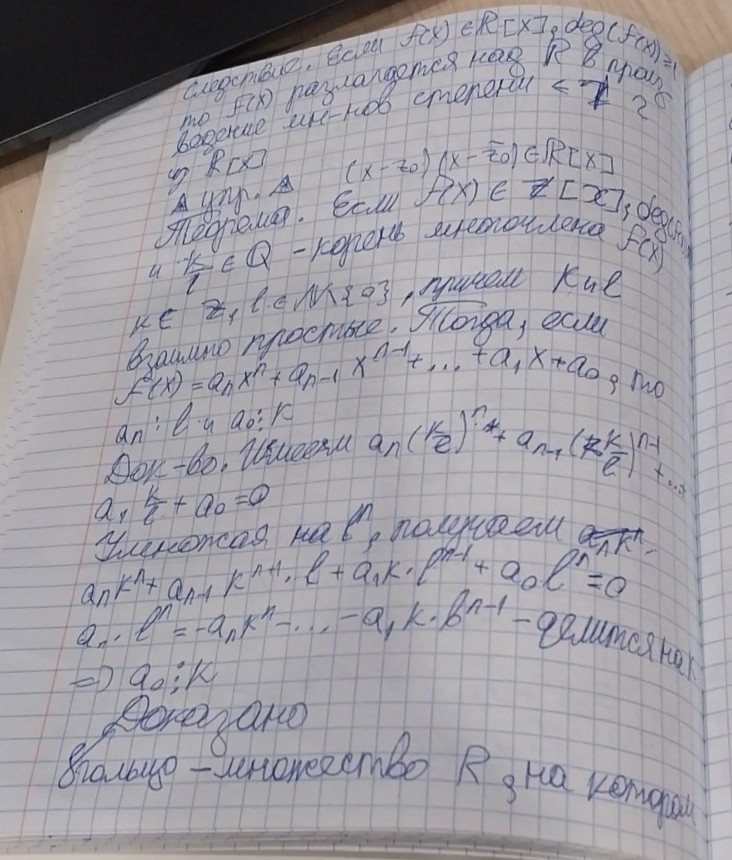 Следствие. Если f(x) ∈ R[x], deg(f(x)) ≥ 1
то f(x) разлагается над R в произ
ведение мн-нов степени ≤ 2
из R[x]
Δ упр. Δ (x-z₀)(x-z̄₀) ∈ R[x]
Теорема. Если f(x) ∈ Z[x], deg(f(x))
и k/l ∈ Q - корень многочлена f(x)
k ∈ Z, l ∈ N\{0}, причем k и l
взаимно простые. Тогда, если
f(x) = aₙxⁿ + aₙ₋₁xⁿ⁻¹ + ... + a₁x + a₀, то
aₙ ⋮ l и a₀ ⋮ k
Док-во. Имеем aₙ(k/l)ⁿ + aₙ₋₁(k/l)ⁿ⁻¹ + ...
a₁ k/l + a₀ = 0
Умножая на lⁿ, получаем
aₙkⁿ + aₙ₋₁kⁿ⁺¹·l + a₁k·lⁿ⁻¹ + a₀lⁿ = 0
a₀·lⁿ = -aₙkⁿ - ... - a₁k·lⁿ⁻¹ - делится на k
=> a₀ ⋮ k
Доказано
Кольцо - множество R, на котором